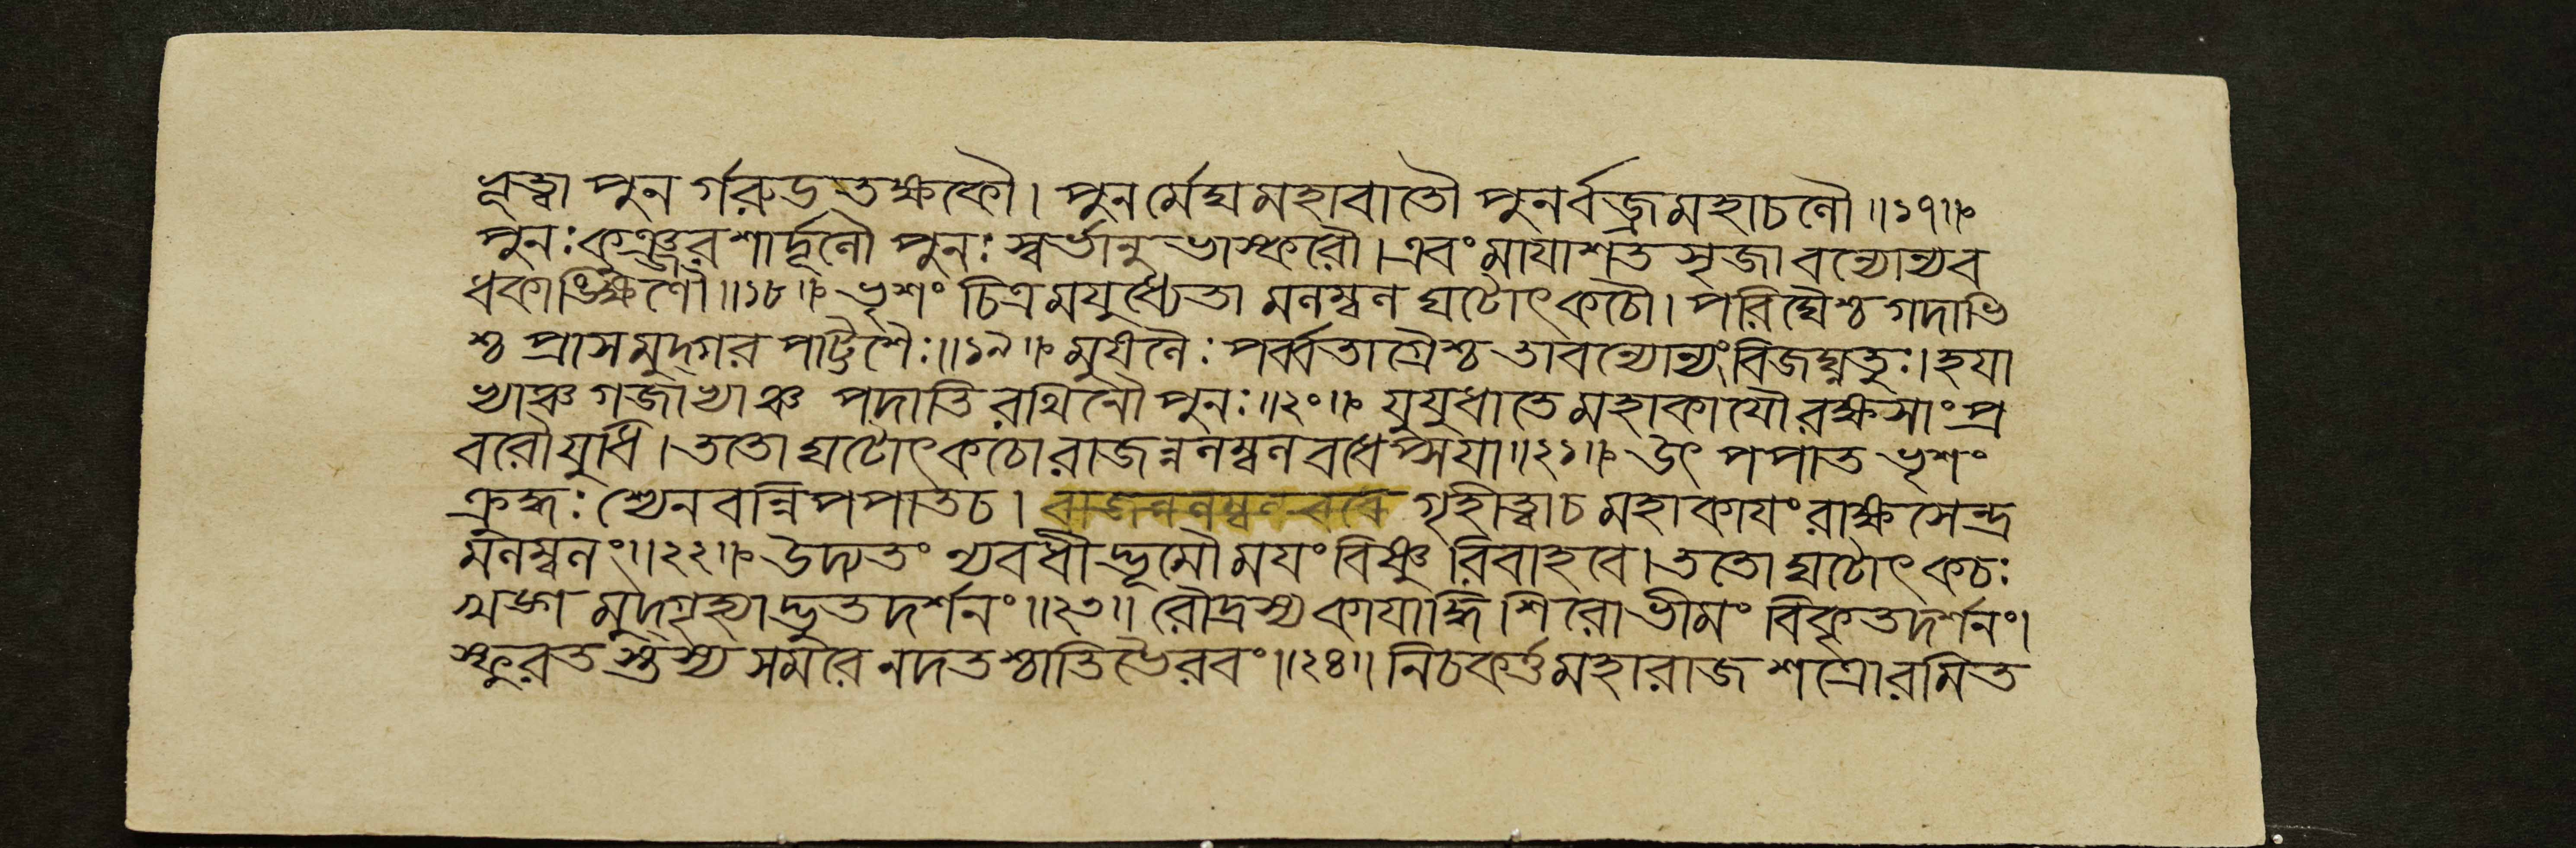 ধূত্বা পুন র্গরুড তক্ষকৌ। পুনর্মেঘমহাবাতৌ পুনর্বজ্রমহাচলৌ॥১৭॥
পুনঃকুঞ্জরশার্দূলৌ পুনঃ স্বর্ভানুভাস্করৌ।এবংমাযাশতসৃজাবন্যোন্যব
ধকাঙ্ক্ষিণৌ॥১৮॥ ভৃশং চিত্রমযুধ্যেতা মলম্বল ঘটোৎকচৌ। পরিঘৈশ্চ গদাভি
শ্চ প্রাসমুদ্গর পট্টিশৈঃ॥১৯॥ মুষলৈঃ পর্ব্বতাগ্রৈশ্চ তাবন্যোন্যংবিজঘ্নতুঃ।হযা
ভ্যাঞ্চগজাভ্যাঞ্চ পদাতি রথিনৌ পুনঃ॥২০॥ যুযুধাতে মহাকাযৌরক্ষসাংপ্র
বরৌযুধি।ততো ঘটোৎকচো রাজন্নলম্বল বধেপ্সযা॥২১॥ উৎ পপাত ভৃশং
ক্রুদ্ধঃ শ্যেনবন্নিপপাতচ। গৃহীত্বাচ মহাকাযংরাক্ষসেন্দ্র
মলম্বলং॥২২॥ উদ্যতং ন্যবধীদ্ভূমৌ মযং বিষ্ণু রিবাহবে।ততো ঘটোৎকচঃ
খড়্গ মুদ্গৃহ্যাদ্ভুতদর্শনং॥২৩॥ রৌদ্রস্যকাযাদ্ধি শিরোভীমং বিকৃতদর্শনং।
স্ফুরতস্তস্য সমরে নদতশ্চাতিভৈরবং॥২৪॥ নিচকর্ত্তমহারাজ শত্রোরমিত